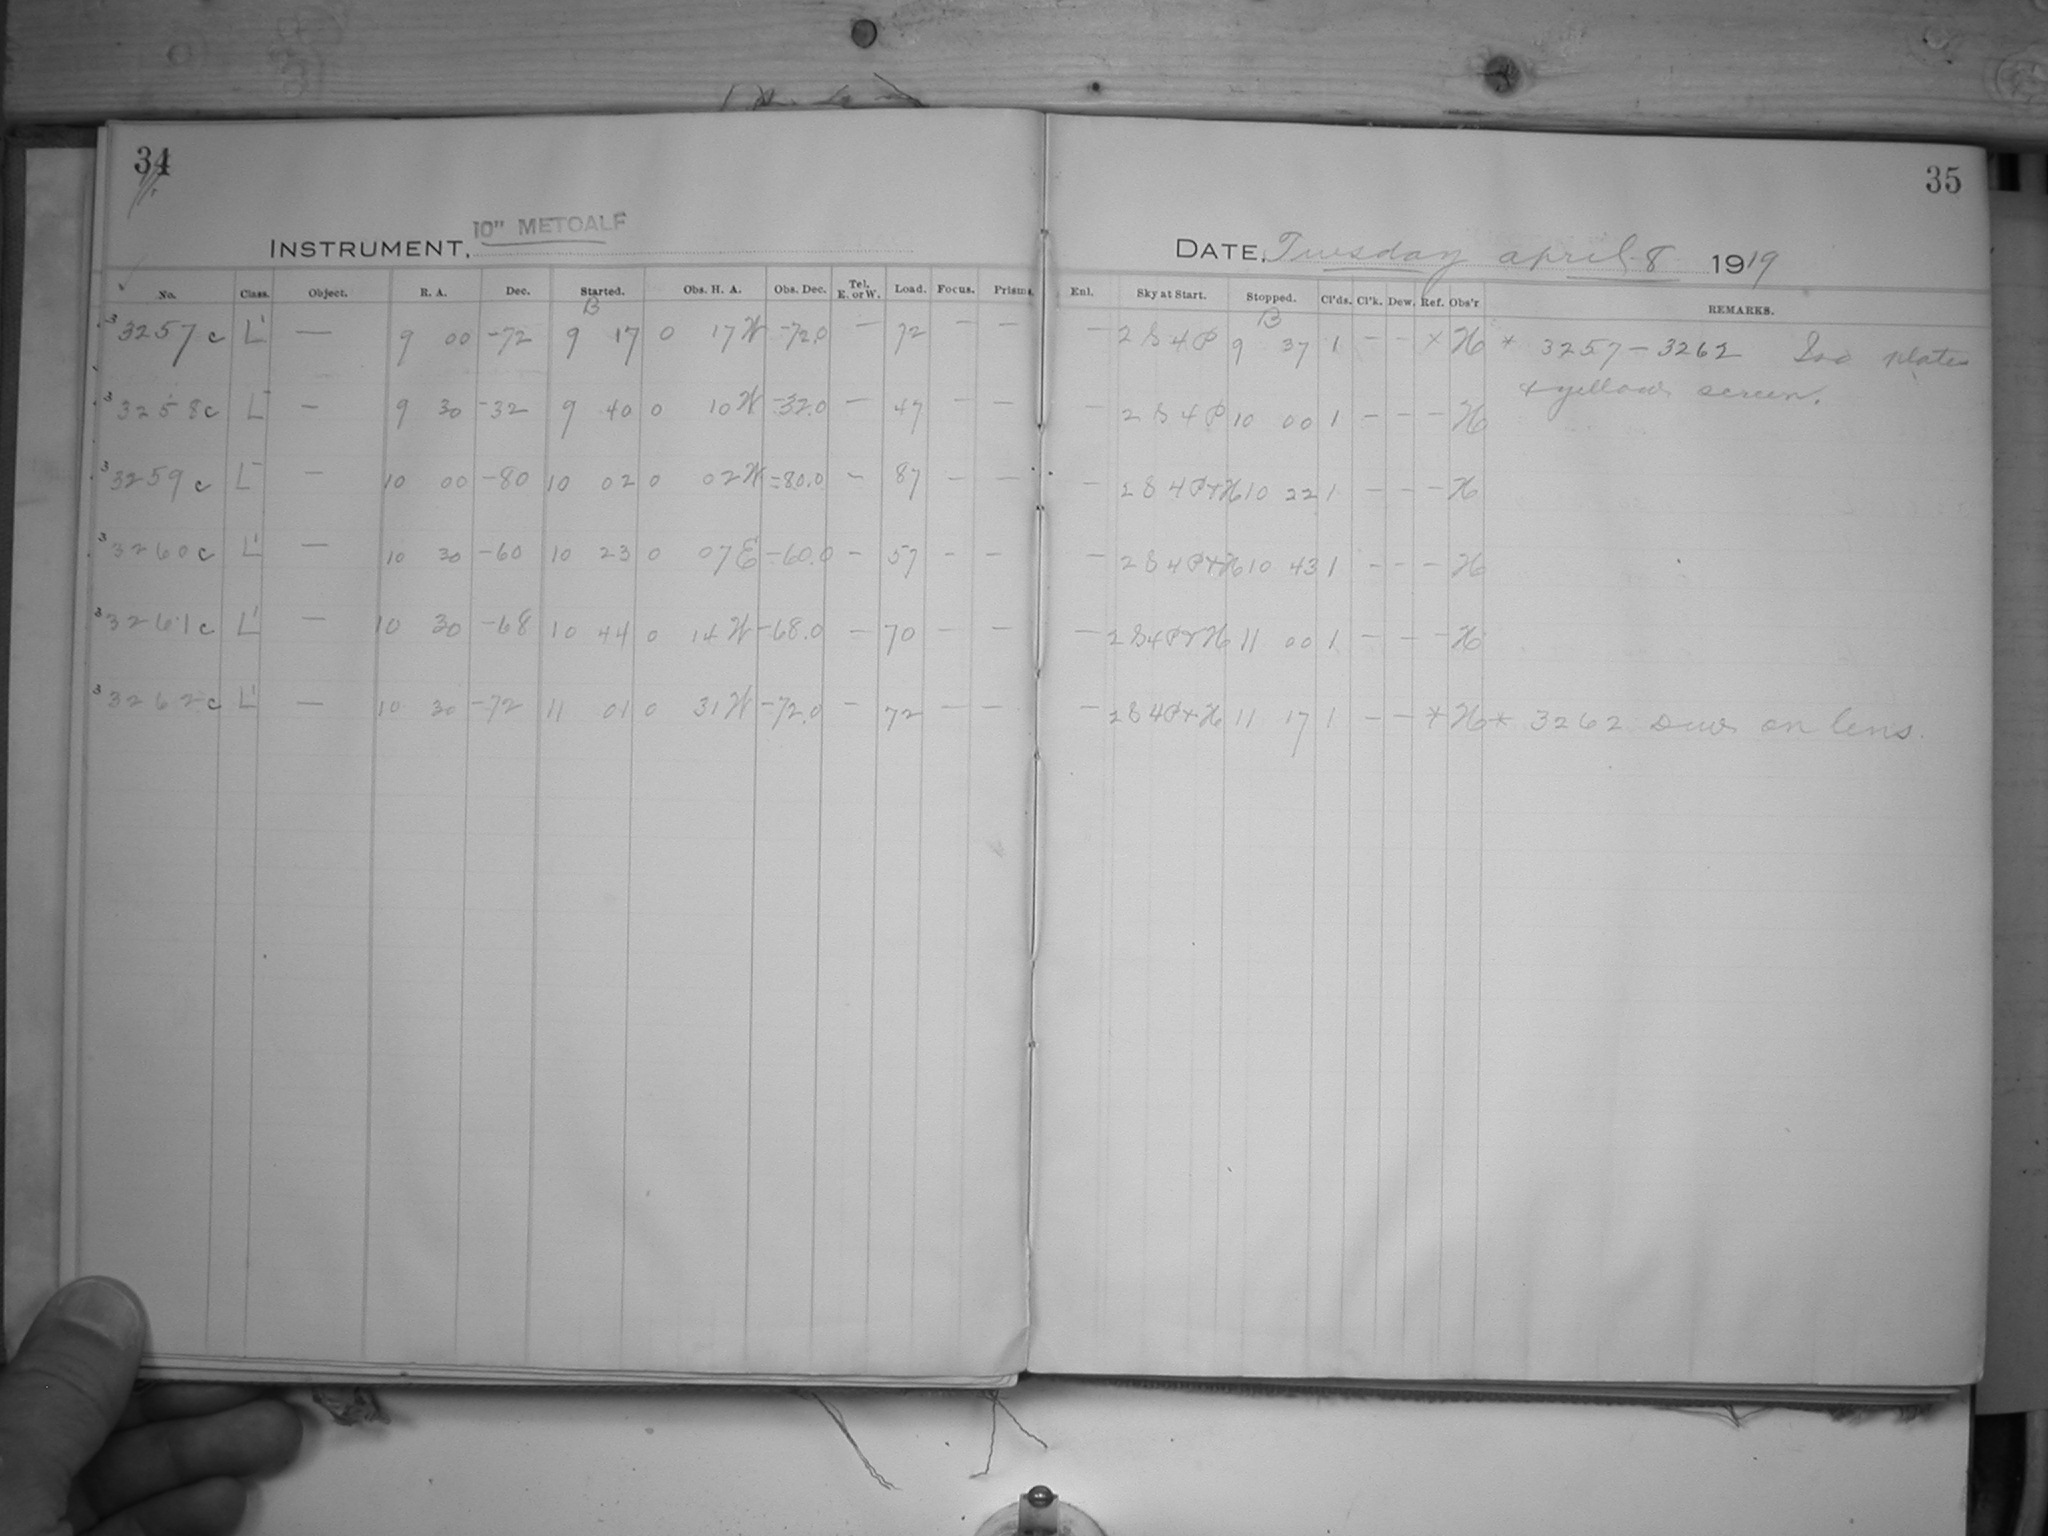 34
35
10" METCALF
INSTRUMENT,
DATE, Tuesday april 8 1919
No. Class. Object. R. A. Dec. Started. Obs. H. A. Obs. Dec. Tel. E. or W. Load. Focus. Prisms. Enl. Sky at Start. Stopped. Cl'ds. Cl'k. Dew. Ref. Obs'r REMARKS.
B B
3 3257 c L' — 9 00 -72 9 17 0 17 W -72.0 — 72 — — — 2 S 4 P 9 37 1 — — × H * 3257 - 3262 Iso plates
+ yellow screen.
3 3258 c L' — 9 30 -32 9 40 0 10 W -32.0 — 47 — — — 2 S 4 P 10 00 1 — — — H
3 3259 c L' — 10 00 -80 10 02 0 02 W -80.0 — 87 — — — 2 S 4 P+H 10 22 1 — — — H
3 3260 c L' — 10 30 -60 10 23 0 07 E -60.0 — 57 — — — 2 S 4 P+H 10 43 1 — — — H
3 3261 c L' — 10 30 -68 10 44 0 14 W -68.0 — 70 — — — 2 S 4 P+H 11 00 1 — — — H
3 3262 c L' — 10 30 -72 11 01 0 31 W -72.0 — 72 — — — 2 S 4 P+H 11 17 1 — — * H * 3262 Dew on lens.